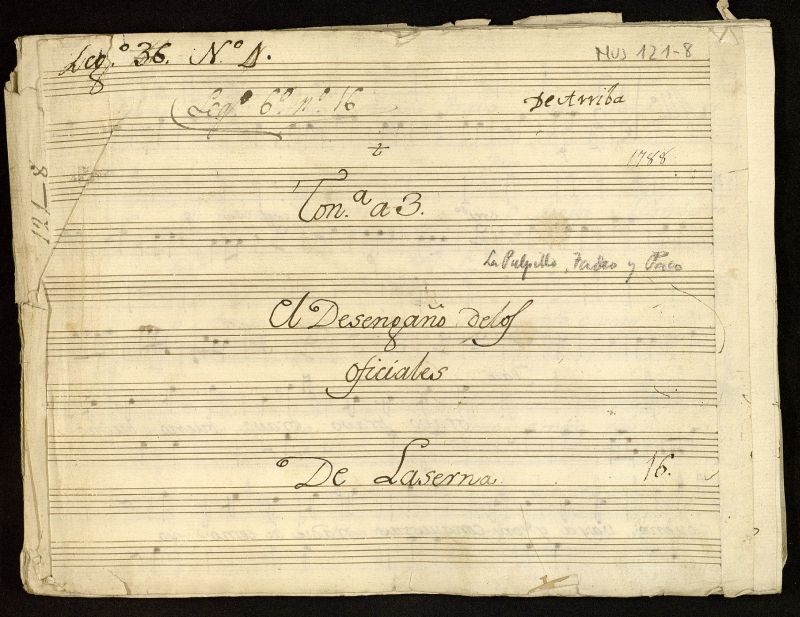 Leg.º 36. N.º 4.
Mus 121-8
Leg.º 6.º n.º 16
De Arriba
1788
Ton.ª a 3.
La Pulpillo, Tadeo y Paco
El Desengaño delos
oficiales
De Laserna
16.
121-8